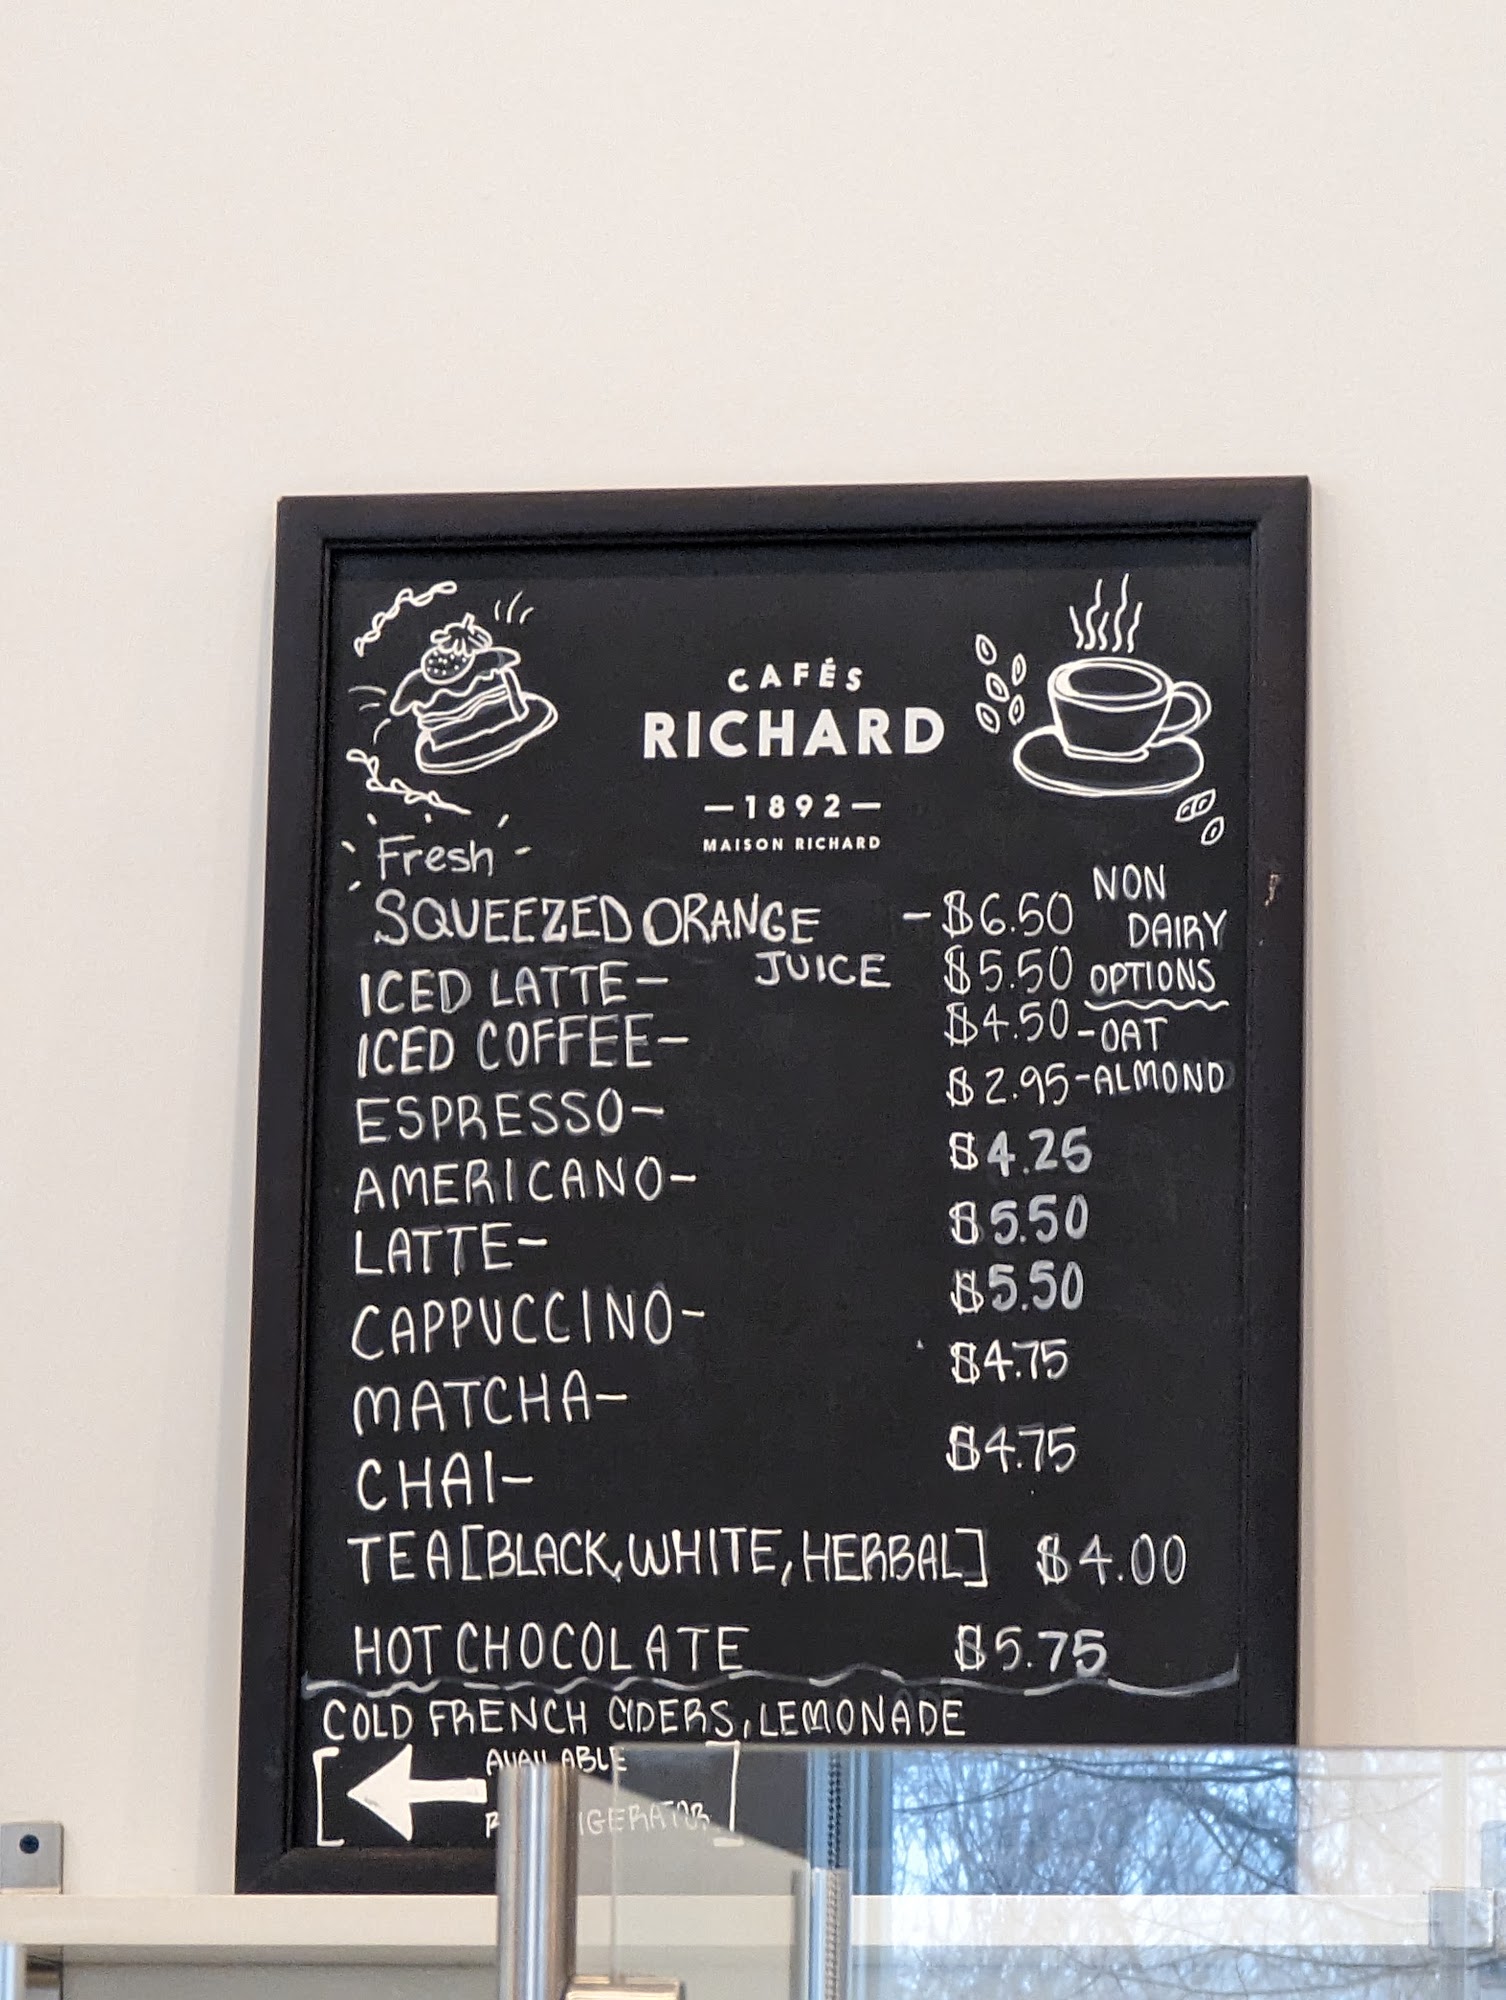 CAFÉS
RICHARD
—1892—
MAISON RICHARD
Fresh -
SQUEEZED ORANGE JUICE -$6.50
ICED LATTE- $5.50
ICED COFFEE- $4.50
ESPRESSO- $2.95
AMERICANO- $4.25
LATTE- $5.50
CAPPUCCINO- $5.50
MATCHA- $4.75
CHAI- $4.75
TEA[BLACK,WHITE,HERBAL] $4.00
HOT CHOCOLATE $5.75
NON
DAIRY
OPTIONS
-OAT
-ALMOND
COLD FRENCH CIDERS, LEMONADE
AVAILABLE